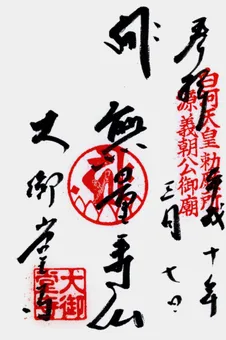 奉拝
白河天皇勅願所
源義朝公御廟
平成十年
三月七日
無量寿仏
大御堂寺
大御堂寺